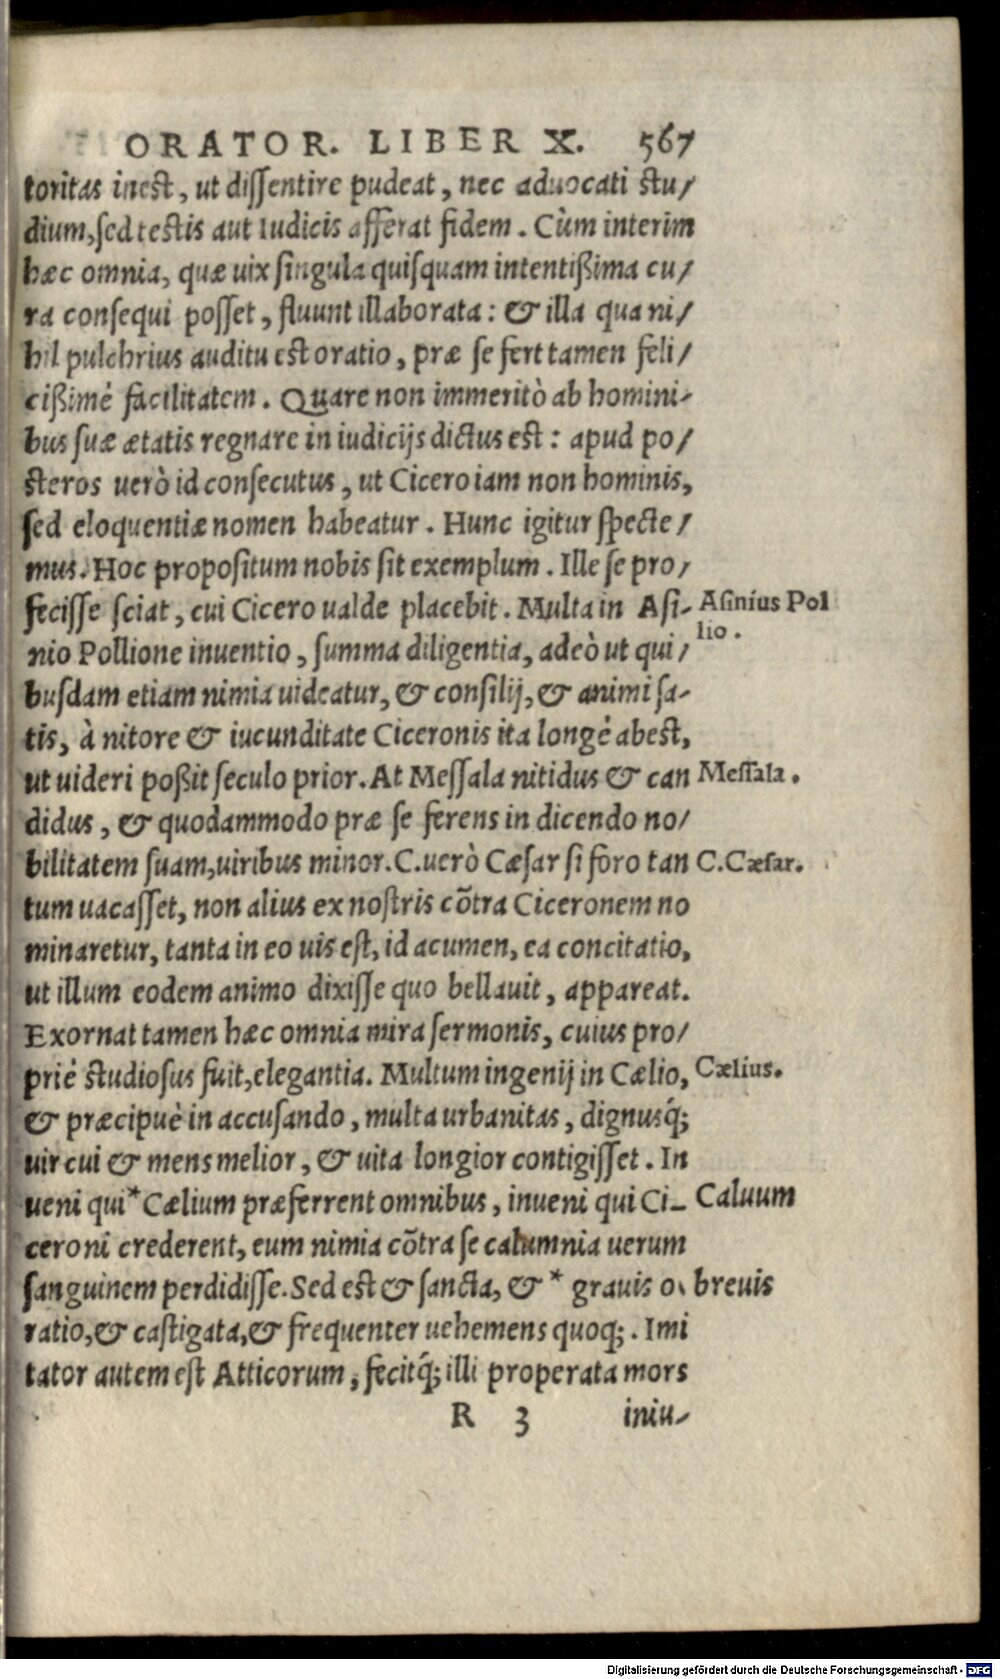 ORATOR. LIBER X. 567
toritas inest, ut dissentire pudeat, nec aduocati stu/
dium, sed testis aut Iudicis afferat fidem. Cùm interim
hæc omnia, quæ uix singula quisquam intentißima cu/
ra consequi posset, fluunt illaborata: & illa qua ni/
hil pulchrius auditu est oratio, præ se fert tamen feli/
cißimè facilitatem. Quare non immeritò ab homini-
bus suæ ætatis regnare in iudicijs dictus est: apud po/
steros uerò id consecutus, ut Cicero iam non hominis,
sed eloquentiæ nomen habeatur. Hunc igitur specte/
mus. Hoc propositum nobis sit exemplum. Ille se pro/
fecisse sciat, cui Cicero ualde placebit. Multa in Asi-
Asinius Pol
lio.
nio Pollione inuentio, summa diligentia, adeò ut qui/
busdam etiam nimia uideatur, & consilij, & animi sa-
tis, à nitore & iucunditate Ciceronis ita longè abest,
ut uideri poßit seculo prior. At Messala nitidus & can
Messala.
didus, & quodammodo præ se ferens in dicendo no/
bilitatem suam, uiribus minor. C. uerò Cæsar si foro tan
C. Cæsar.
tum uacasset, non alius ex nostris cōtra Ciceronem no
minaretur, tanta in eo uis est, id acumen, ea concitatio,
ut illum eodem animo dixisse quo bellauit, appareat.
Exornat tamen hæc omnia mira sermonis, cuius pro/
priè studiosus fuit, elegantia. Multum ingenij in Cælio,
Cælius.
& præcipuè in accusando, multa urbanitas, dignusq́;
uir cui & mens melior, & uita longior contigisset. In
ueni qui * Cælium præferrent omnibus, inueni qui Ci-
Caluum
ceroni crederent, eum nimia cōtra se calumnia uerum
sanguinem perdidisse. Sed est & sancta, & * grauis o-
breuis
ratio, & castigata, & frequenter uehemens quoq;. Imi
tator autem est Atticorum, fecitq́; illi properata mors
R 3 iniu-
Digitalisierung gefördert durch die Deutsche Forschungsgemeinschaft - DFG